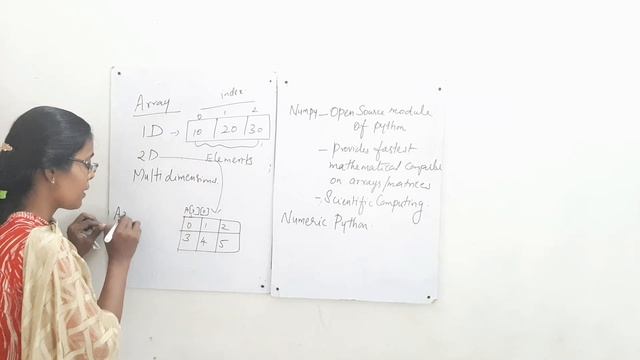 Array
index
0 1 2
1D → 10 20 30
2D
Elements
Multi dimensions.
A[0][0]
0 1 2
3 4 5
Numpy – Open Source module
of python
– Provides fastest
mathematical
on arrays/matrices
– Scientific Computing.
Numeric Python.